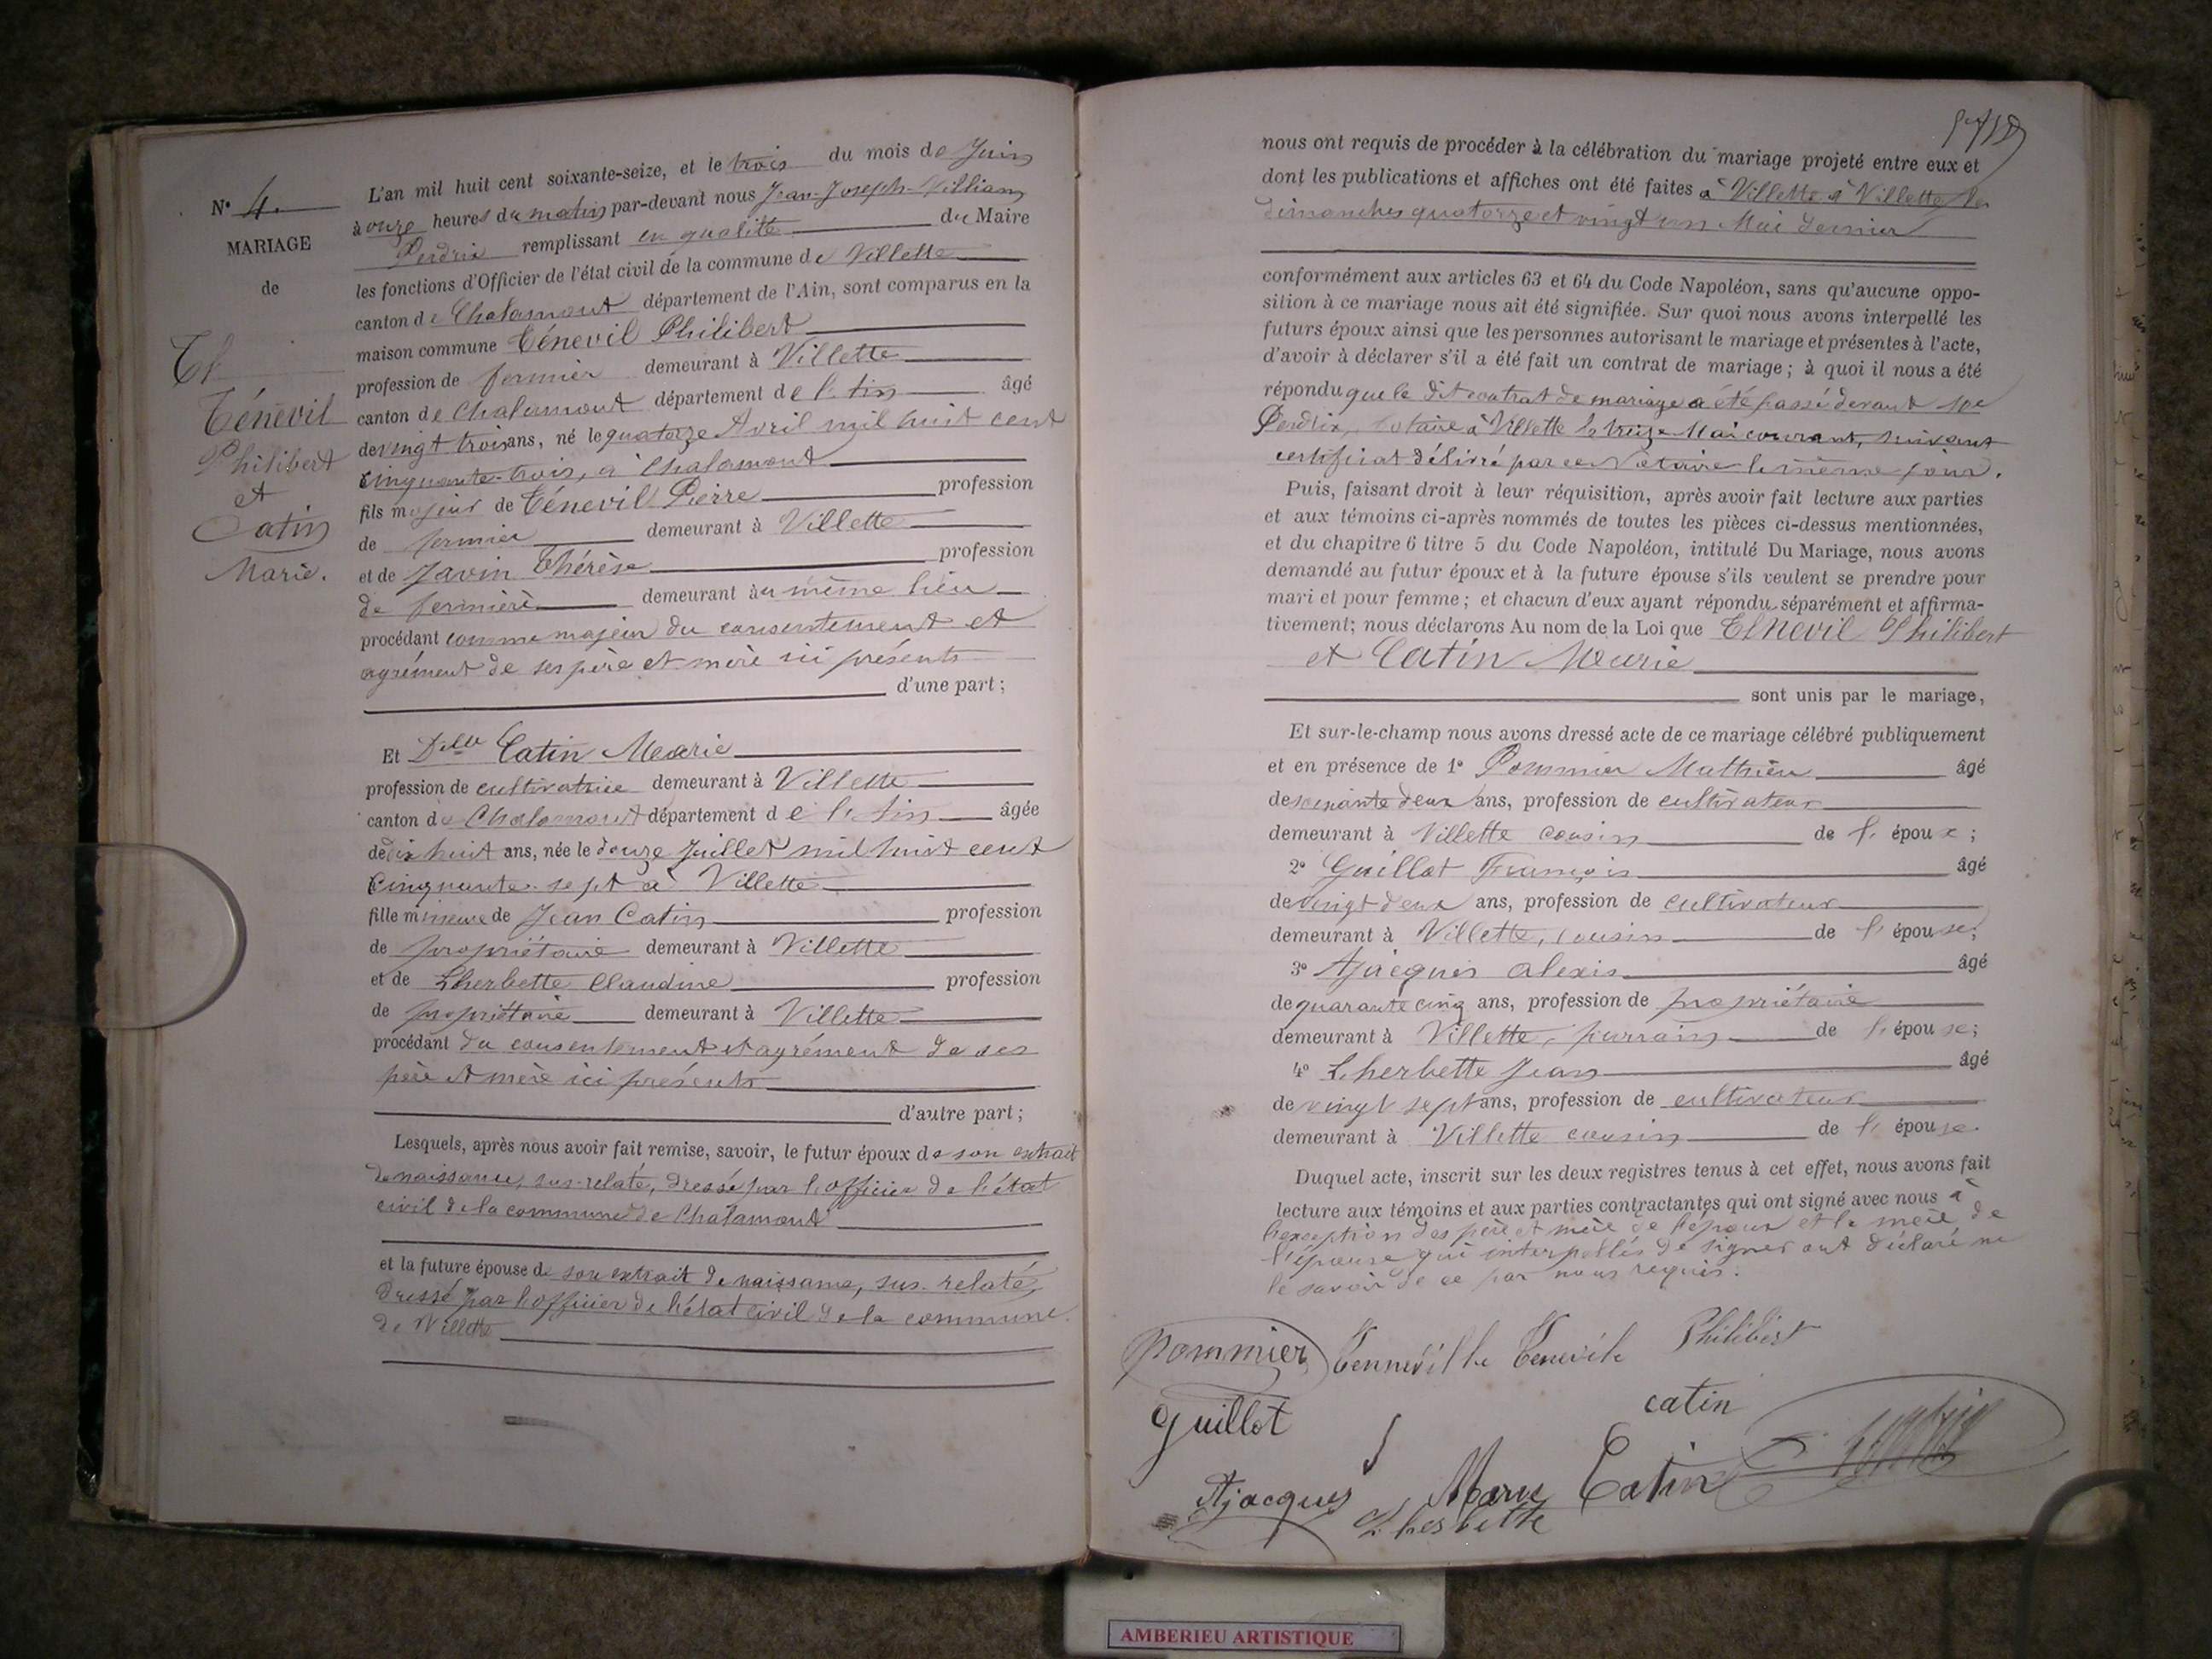 N° 4.
MARIAGE
de
Te
Ténevil
Philibert
et
Catin
Marie.
L'an mil huit cent soixante-seize, et le trois du mois de Juin
à onze heures du matin par-devant nous Jean-Joseph-Villiam
Perdrix remplissant en qualité de Maire
les fonctions d'Officier de l'état civil de la commune de Villette
canton de Chalamont département de l'Ain, sont comparus en la
maison commune Ténevil Philibert
profession de fermier demeurant à Villette
canton de Chalamont département de l'Ain âgé
de vingt trois ans, né le quatorze Avril mil huit cent
cinquante-trois, à Chalamont
fils majeur de Ténevil Pierre profession
de fermier demeurant à Villette
et de Javin Thérèse profession
de fermière demeurant au même lieu
procédant comme majeur du consentement et
agrément de ses père et mère ici présents
d'une part ;
Et Delle Catin Marie
profession de cultivatrice demeurant à Villette
canton de Chalamont département de l'Ain âgée
de dix huit ans, née le douze Juillet mil huit cent
cinquante-sept à Villette
fille mineure de Jean Catin profession
de propriétaire demeurant à Villette
et de Lherbette Claudine profession
de propriétaire demeurant à Villette
procédant du consentement et agrément de ses
père et mère ici présents
d'autre part ;
Lesquels, après nous avoir fait remise, savoir, le futur époux de son extrait
de naissance, sus-relaté, dressé par l'officier de l'état
civil de la commune de Chalamont
et la future épouse de son extrait de naissance, sus-relaté,
dressé par l'officier de l'état civil de la commune
de Villette
nous ont requis de procéder à la célébration du mariage projeté entre eux et
dont les publications et affiches ont été faites à Villette à Villette les
dimanches quatorze et vingt un Mai dernier
conformément aux articles 63 et 64 du Code Napoléon, sans qu'aucune oppo-
sition à ce mariage nous ait été signifiée. Sur quoi nous avons interpellé les
futurs époux ainsi que les personnes autorisant le mariage et présentes à l'acte,
d'avoir à déclarer s'il a été fait un contrat de mariage ; à quoi il nous a été
répondu que le dit contrat de mariage a été passé devant Me
Perdrix, Notaire à Villette le treize Mai courant, suivant
certificat délivré par ce Notaire le même jour.
Puis, faisant droit à leur réquisition, après avoir fait lecture aux parties
et aux témoins ci-après nommés de toutes les pièces ci-dessus mentionnées,
et du chapitre 6 titre 5 du Code Napoléon, intitulé Du Mariage, nous avons
demandé au futur époux et à la future épouse s'ils veulent se prendre pour
mari et pour femme ; et chacun d'eux ayant répondu séparément et affirma-
tivement; nous déclarons Au nom de la Loi que Ténevil Philibert
et Catin Marie
sont unis par le mariage,
Et sur-le-champ nous avons dressé acte de ce mariage célébré publiquement
et en présence de 1° Pommier Mathieu âgé
de soixante deux ans, profession de cultivateur
demeurant à Villette cousin de l'époux ;
2° Guillot François âgé
de vingt deux ans, profession de cultivateur
demeurant à Villette, cousin de l'épouse ;
3° Ajacques Alexis âgé
de quarante cinq ans, profession de propriétaire
demeurant à Villette, parrain de l'épouse ;
4° Lherbette Jean âgé
de vingt sept ans, profession de cultivateur
demeurant à Villette cousin de l'épouse.
Duquel acte, inscrit sur les deux registres tenus à cet effet, nous avons fait
lecture aux témoins et aux parties contractantes qui ont signé avec nous à
l'exception des père et mère de l'époux et la mère de
l'épouse qui interpellés de signer ont déclaré ne
le savoir de ce par nous requis.
Pommier Tennéville Tenevile Philibert
Guillot catin
Ajacques Marie Catin
Lherbette
AMBERIEU ARTISTIQUE